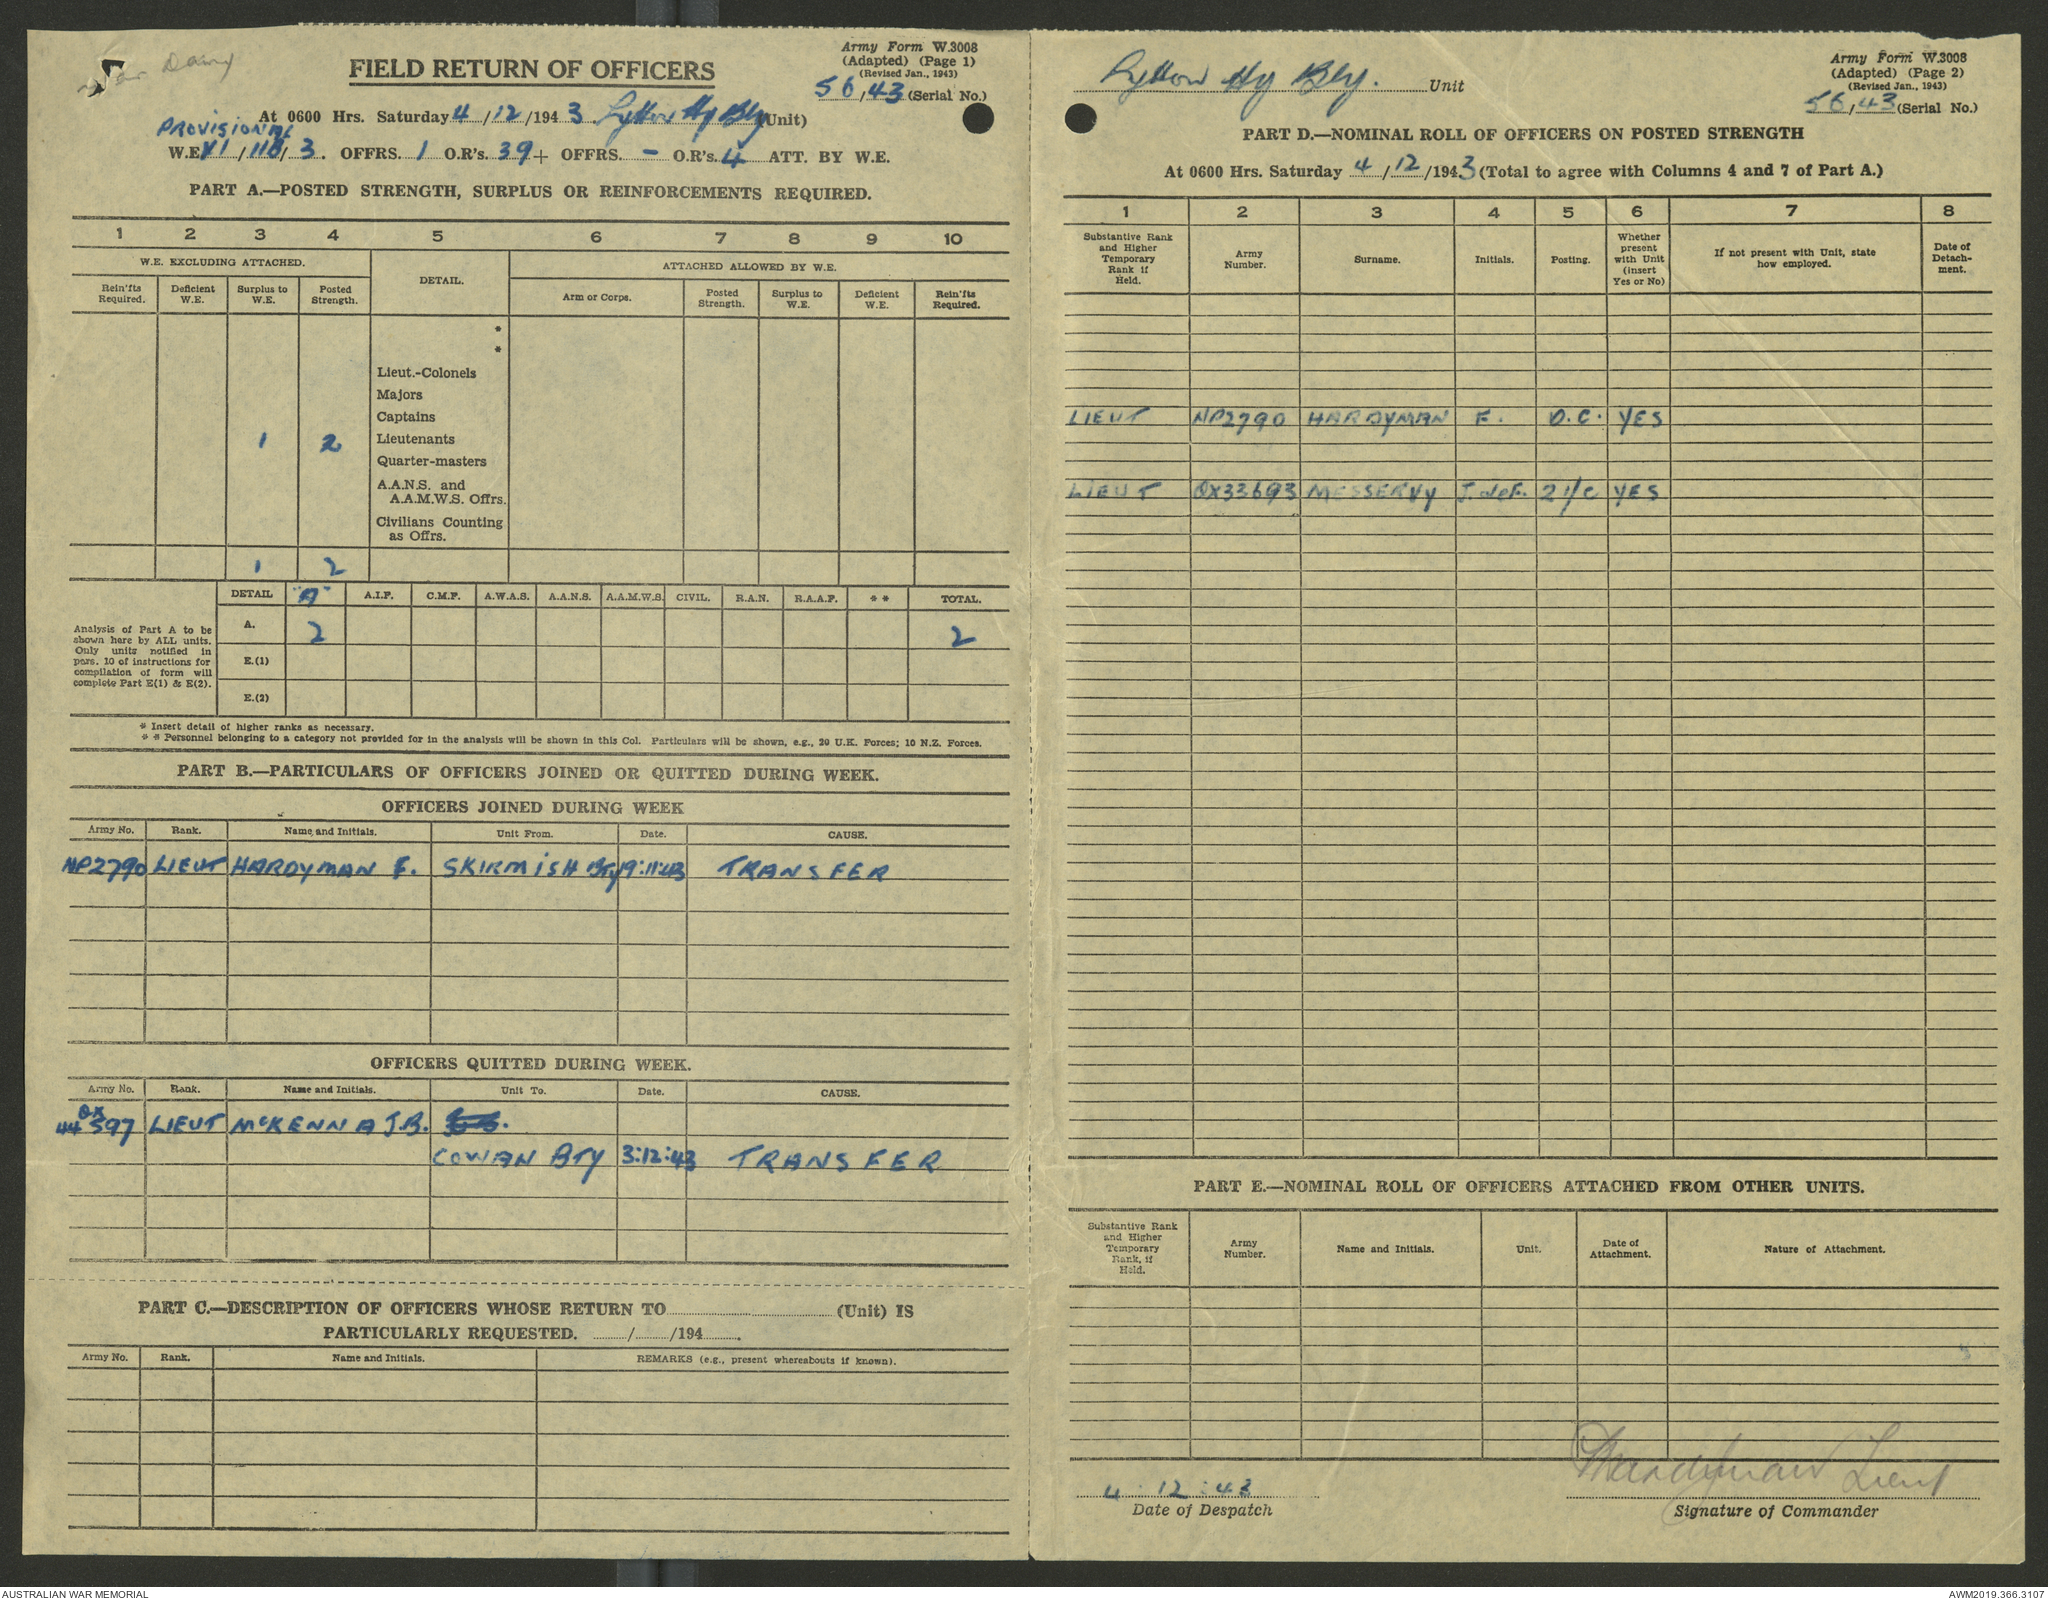 War Dairy
FIELD RETURN OF OFFICERS
Army Form W.3008
(Adapted) (Page 1)
(Revised Jan., 1943)
56/43 (Serial No.)
At 0600 Hrs. Saturday 4/12/1943. Lytton Hy Bty (Unit)
PROVISIONAL
W.E. VI/118/3. OFFRS. 1 O.R's. 39 + OFFRS. - O.R's. 4 ATT. BY W.E.
PART A.—POSTED STRENGTH, SURPLUS OR REINFORCEMENTS REQUIRED.
1 2 3 4 5 6 7 8 9 10
W.E. EXCLUDING ATTACHED. DETAIL. ATTACHED ALLOWED BY W.E.
Rein'fts Required. Deficient W.E. Surplus to W.E. Posted Strength. Arm or Corps. Posted Strength. Surplus to W.E. Deficient W.E. Rein'fts Required.
*
*
Lieut.-Colonels
Majors
Captains
1 2 Lieutenants
Quarter-masters
A.A.N.S. and
A.A.M.W.S. Offrs.
Civilians Counting
as Offrs.
1 2
DETAIL "A" A.I.F. C.M.F. A.W.A.S. A.A.N.S. A.A.M.W.S. CIVIL. R.A.N. R.A.A.F. * * TOTAL.
Analysis of Part A to be
shown here by ALL units.
Only units notified in
para. 10 of instructions for
compilation of form will
complete Part E(1) & E(2).
A. 2 2
E.(1)
E.(2)
* Insert detail of higher ranks as necessary.
* * Personnel belonging to a category not provided for in the analysis will be shown in this Col. Particulars will be shown, e.g., 20 U.K. Forces; 10 N.Z. Forces.
PART B.—PARTICULARS OF OFFICERS JOINED OR QUITTED DURING WEEK.
OFFICERS JOINED DURING WEEK
Army No. Rank. Name and Initials. Unit From. Date. CAUSE.
NP2790 LIEUT HARDYMAN F. SKIRMISH BTY 19:11:43 TRANSFER
OFFICERS QUITTED DURING WEEK.
Army No. Rank. Name and Initials. Unit To. Date. CAUSE.
QX
44597 LIEUT McKENNA J.B.
COWAN BTY 3:12:43 TRANSFER
PART C.—DESCRIPTION OF OFFICERS WHOSE RETURN TO (Unit) IS
PARTICULARLY REQUESTED. / /194 .
Army No. Rank. Name and Initials. REMARKS (e.g., present whereabouts if known).
Lytton Hy Bty. Unit
Army Form W.3008
(Adapted) (Page 2)
(Revised Jan., 1943)
56/43 (Serial No.)
PART D.—NOMINAL ROLL OF OFFICERS ON POSTED STRENGTH
At 0600 Hrs. Saturday 4/12/1943 (Total to agree with Columns 4 and 7 of Part A.)
1 2 3 4 5 6 7 8
Substantive Rank and Higher Temporary Rank if Held. Army Number. Surname. Initials. Posting. Whether present with Unit (insert Yes or No) If not present with Unit, state how employed. Date of Detach-ment.
LIEUT NP2790 HARDYMAN F. O.C. YES
LIEUT QX33693 MESSERVY J. deF. 2 i/c YES
PART E.—NOMINAL ROLL OF OFFICERS ATTACHED FROM OTHER UNITS.
Substantive Rank and Higher Temporary Rank, if Held. Army Number. Name and Initials. Unit. Date of Attachment. Nature of Attachment.
4 . 12 : 43
Date of Despatch
FHardyman Lieut
Signature of Commander
AUSTRALIAN WAR MEMORIAL
AWM2019.366.3107